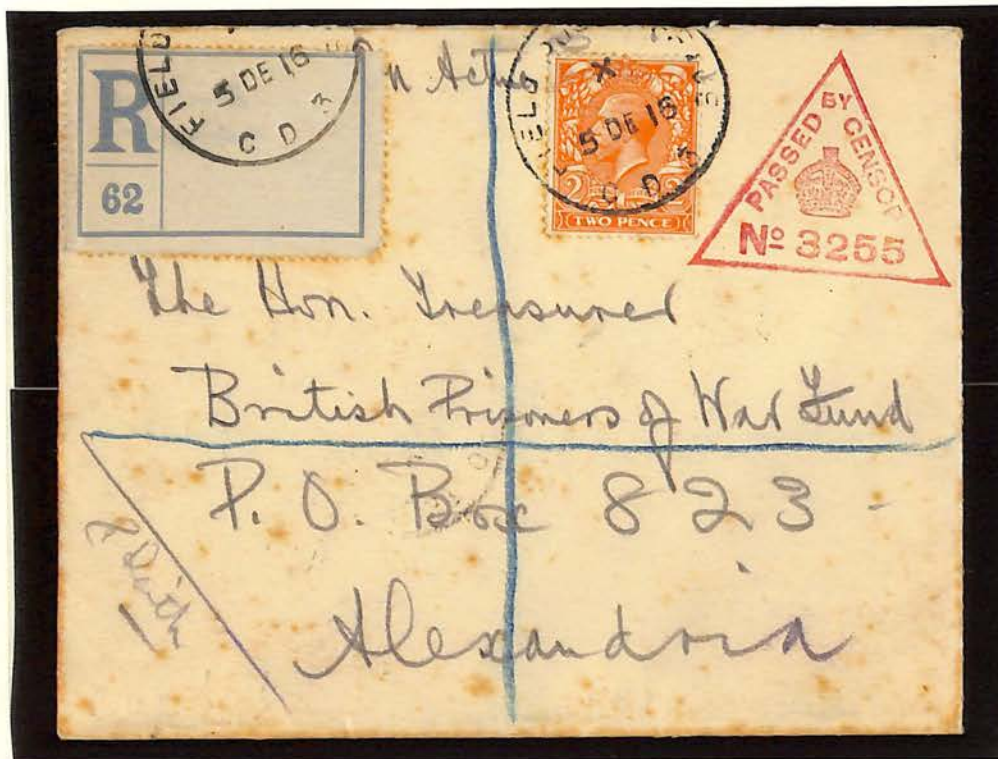 n Active
R
62
FIELD
5 DE 16
C D 3
FIELD
X
5 DE 16
C D 3
TWO PENCE
PASSED BY CENSOR
No 3255
The Hon. Treasurer
British Prisoners of War Fund
P. O. Box 823
Alexandria